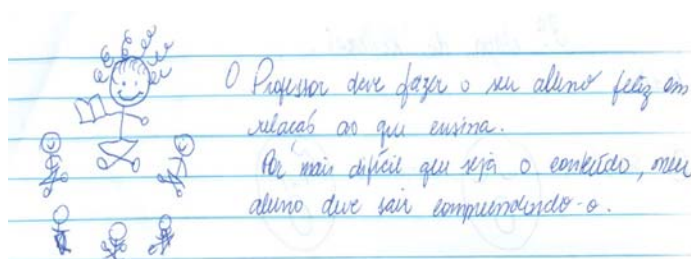 O Professor deve fazer o seu aluno feliz em
relação ao que ensina.
Por mais difícil que seja o conteúdo, meu
aluno deve sair compreendendo-o.